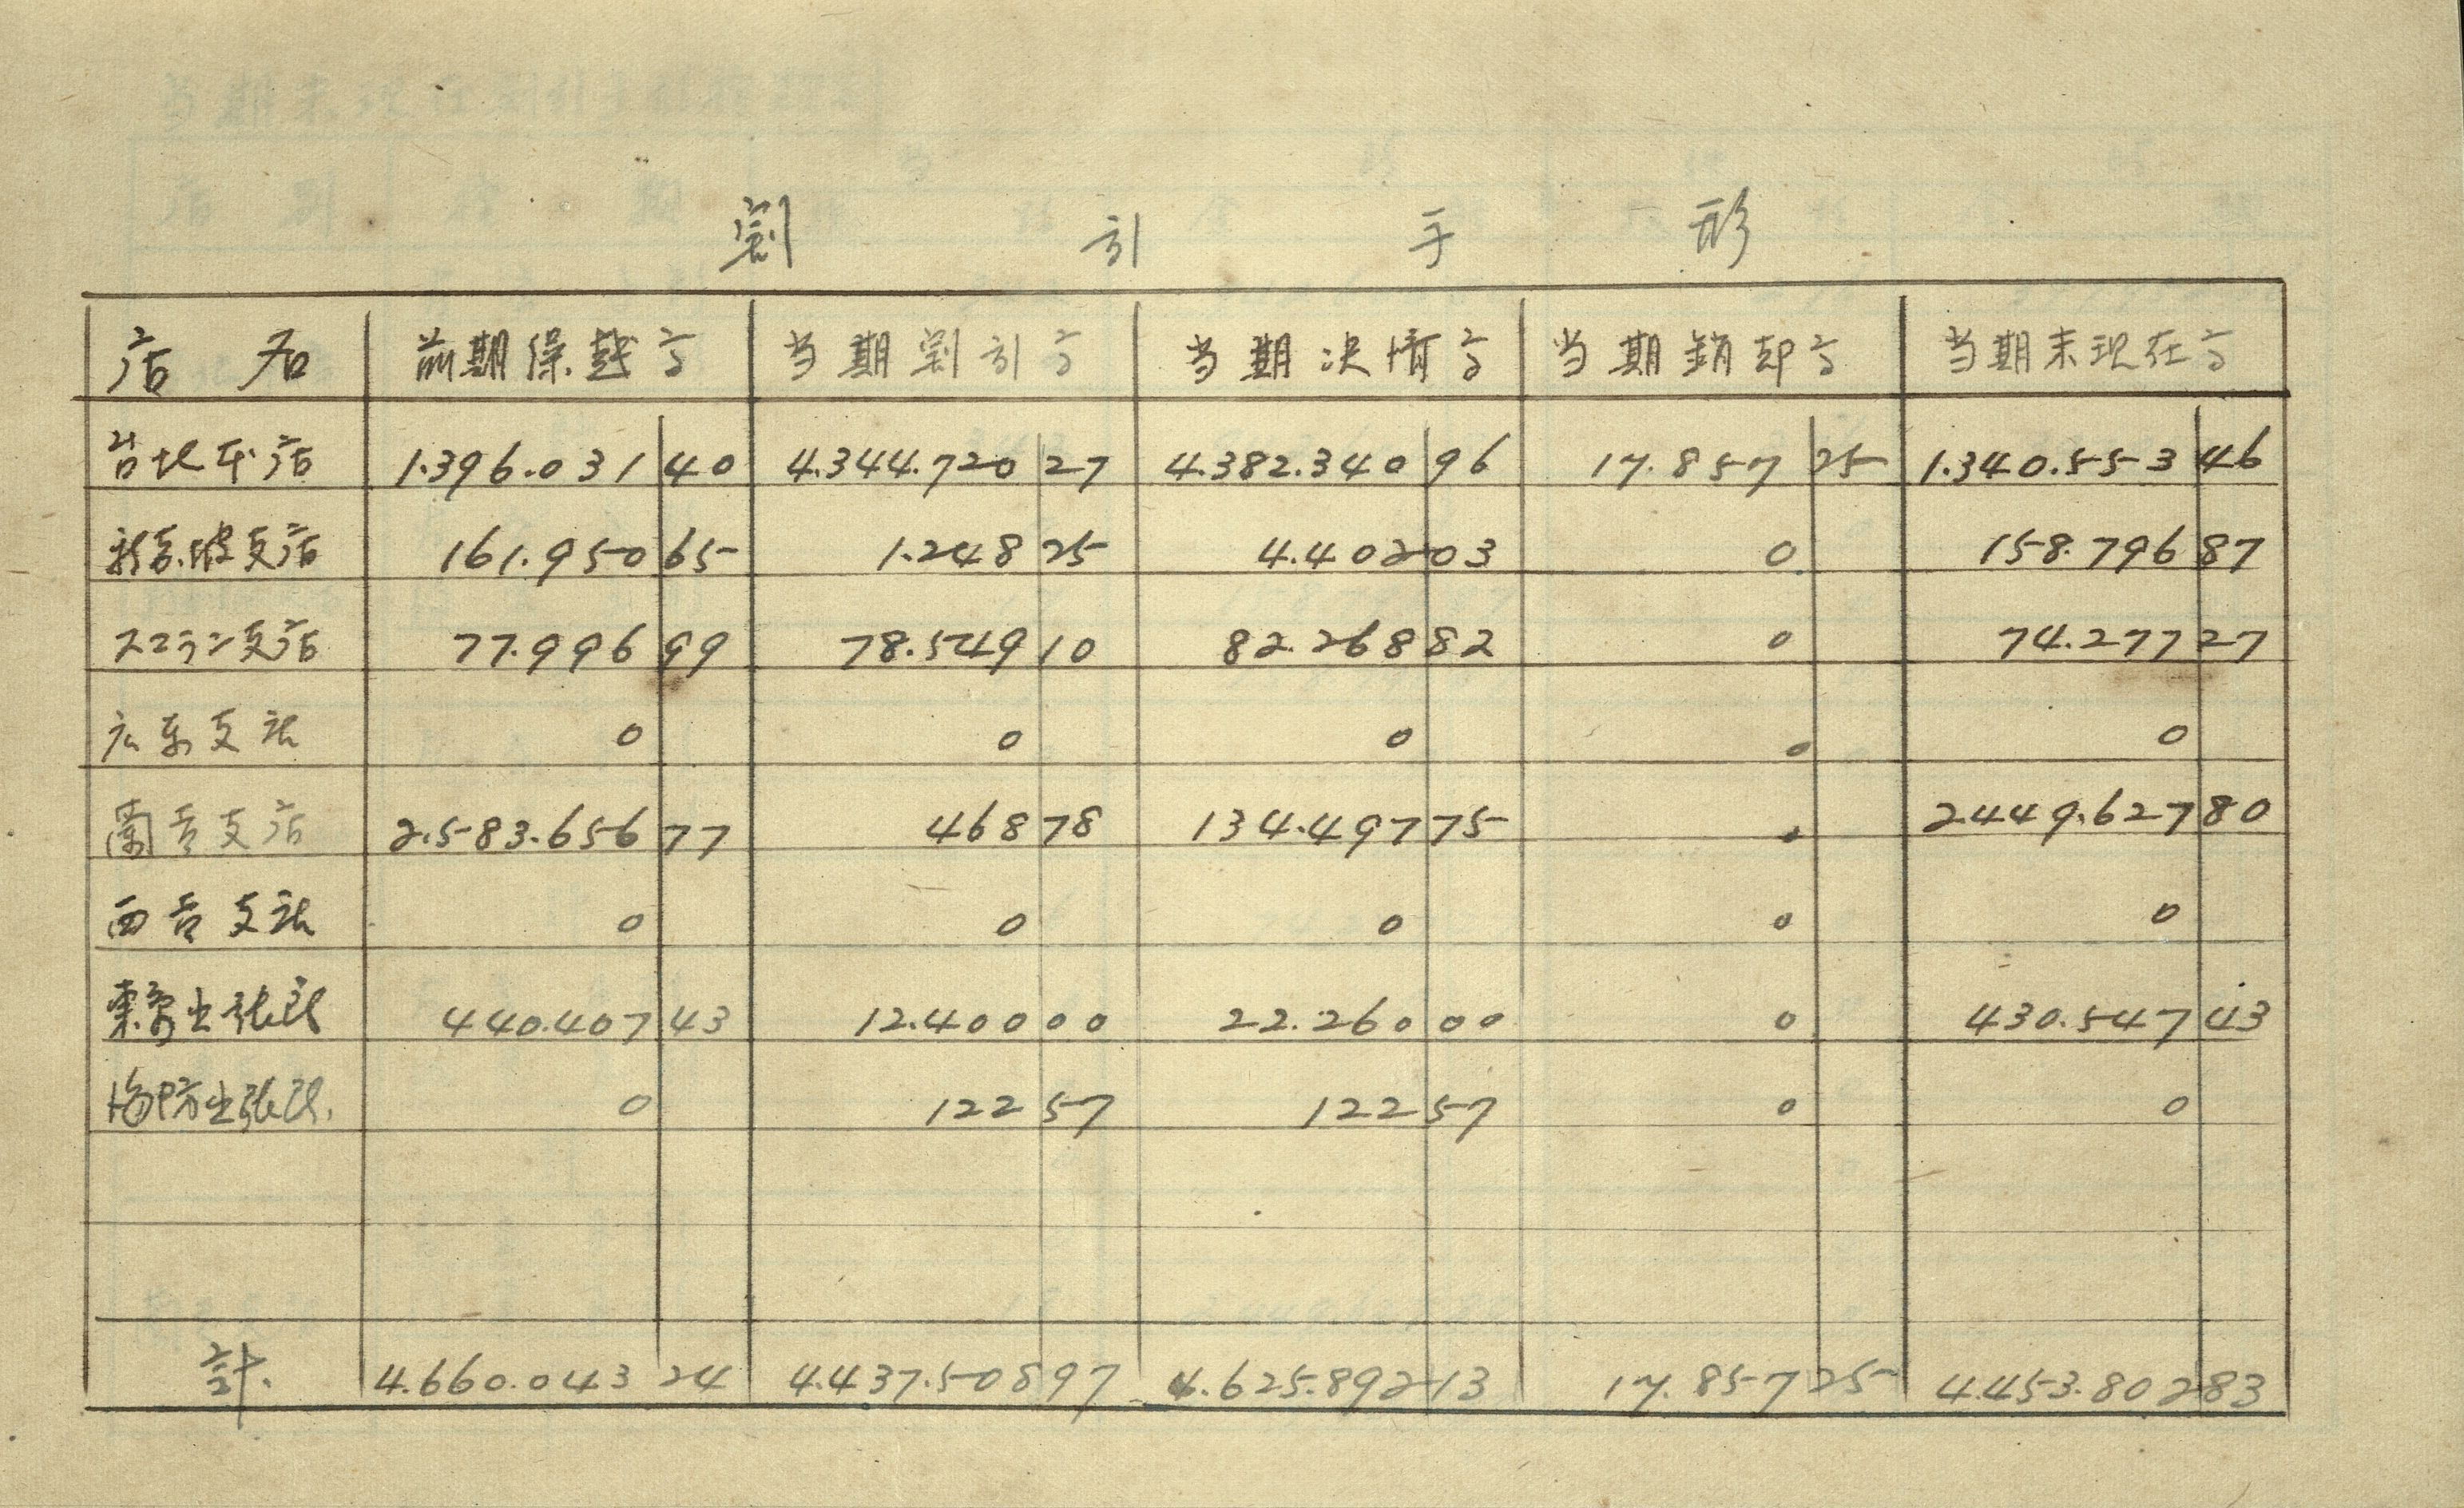 割引手形
店名 前期繰越高 当期割引高 当期決済高 当期銷却高 当期末現在高
台北本店 1.396.031 40 4.344.720 27 4.382.340 96 17.857 25 1.340.553 46
新嘉坡支店 161.950 65 1.248 25 4.402 03 0 158.796 87
スマラン支店 77.996 99 78.549 10 82.268 82 0 74.277 27
広東支店 0 0 0 0 0
蘭貢支店 2.583.656 77 468 78 134.497 75 0 2449.627 80
西貢支店 0 0 0 0 0
東京出張所 440.407 43 12.400 00 22.260 00 0 430.547 43
海防出張所 0 122 57 122 57 0 0
計 4.660.043 24 4.437.508 97 4.625.892 13 17.857 25 4.453.802 83